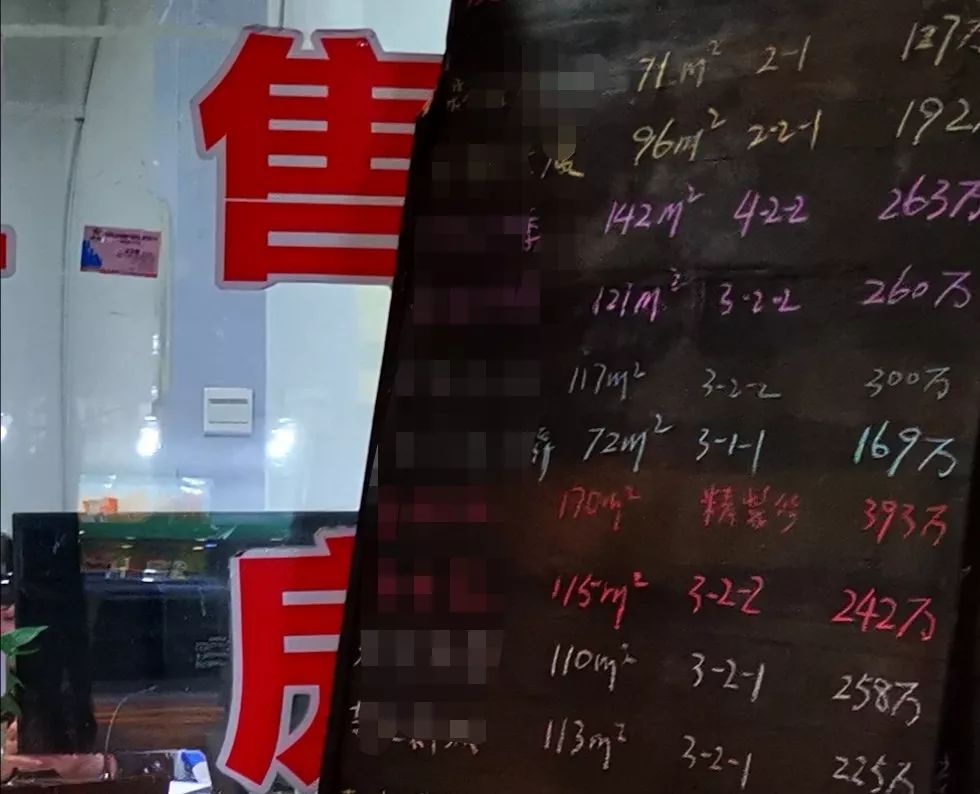 售
71m² 2-1 137万
96m² 2-2-1 192
142m² 4-2-2 263万
121m² 3-2-2 260万
117m² 3-2-2 300万
72m² 3-1-1 169万
170m² 精装修 393万
115m² 3-2-2 242万
110m² 3-2-1 258万
113m² 3-2-1 225万